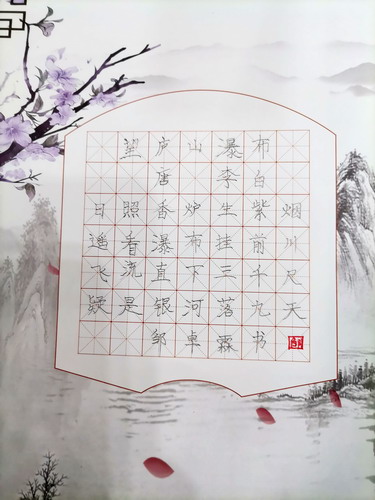 望庐山瀑布
唐 李白
日照香炉生紫烟
遥看瀑布挂前川
飞流直下三千尺
疑是银河落九天
邹卓霖书